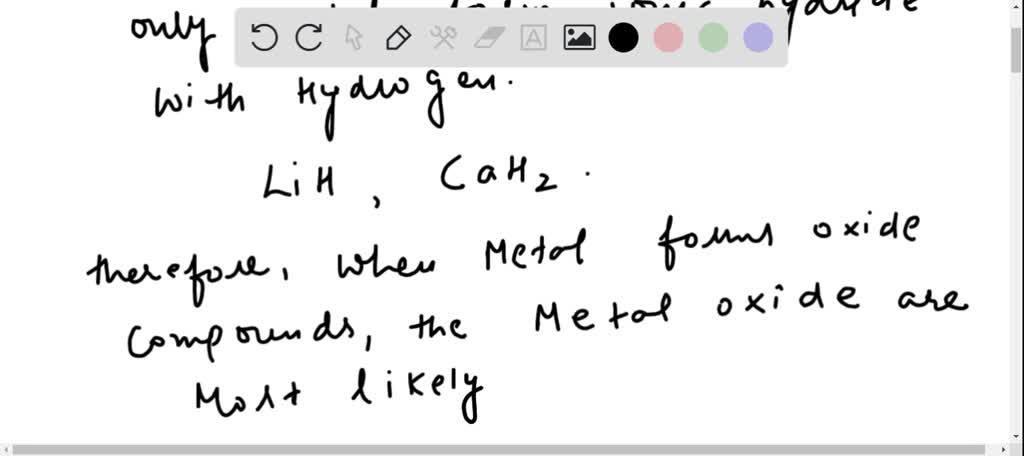 only hydride
with Hydrogen.
LiH, CaH2.
therefore, when Metal forms oxide
compounds, the Metal oxide are
Most likely